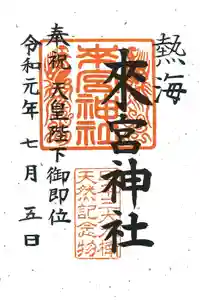 熱海
來宮神社
奉祝 天皇陛下御即位
令和元年 七月 五日
來宮神社
天然記念物